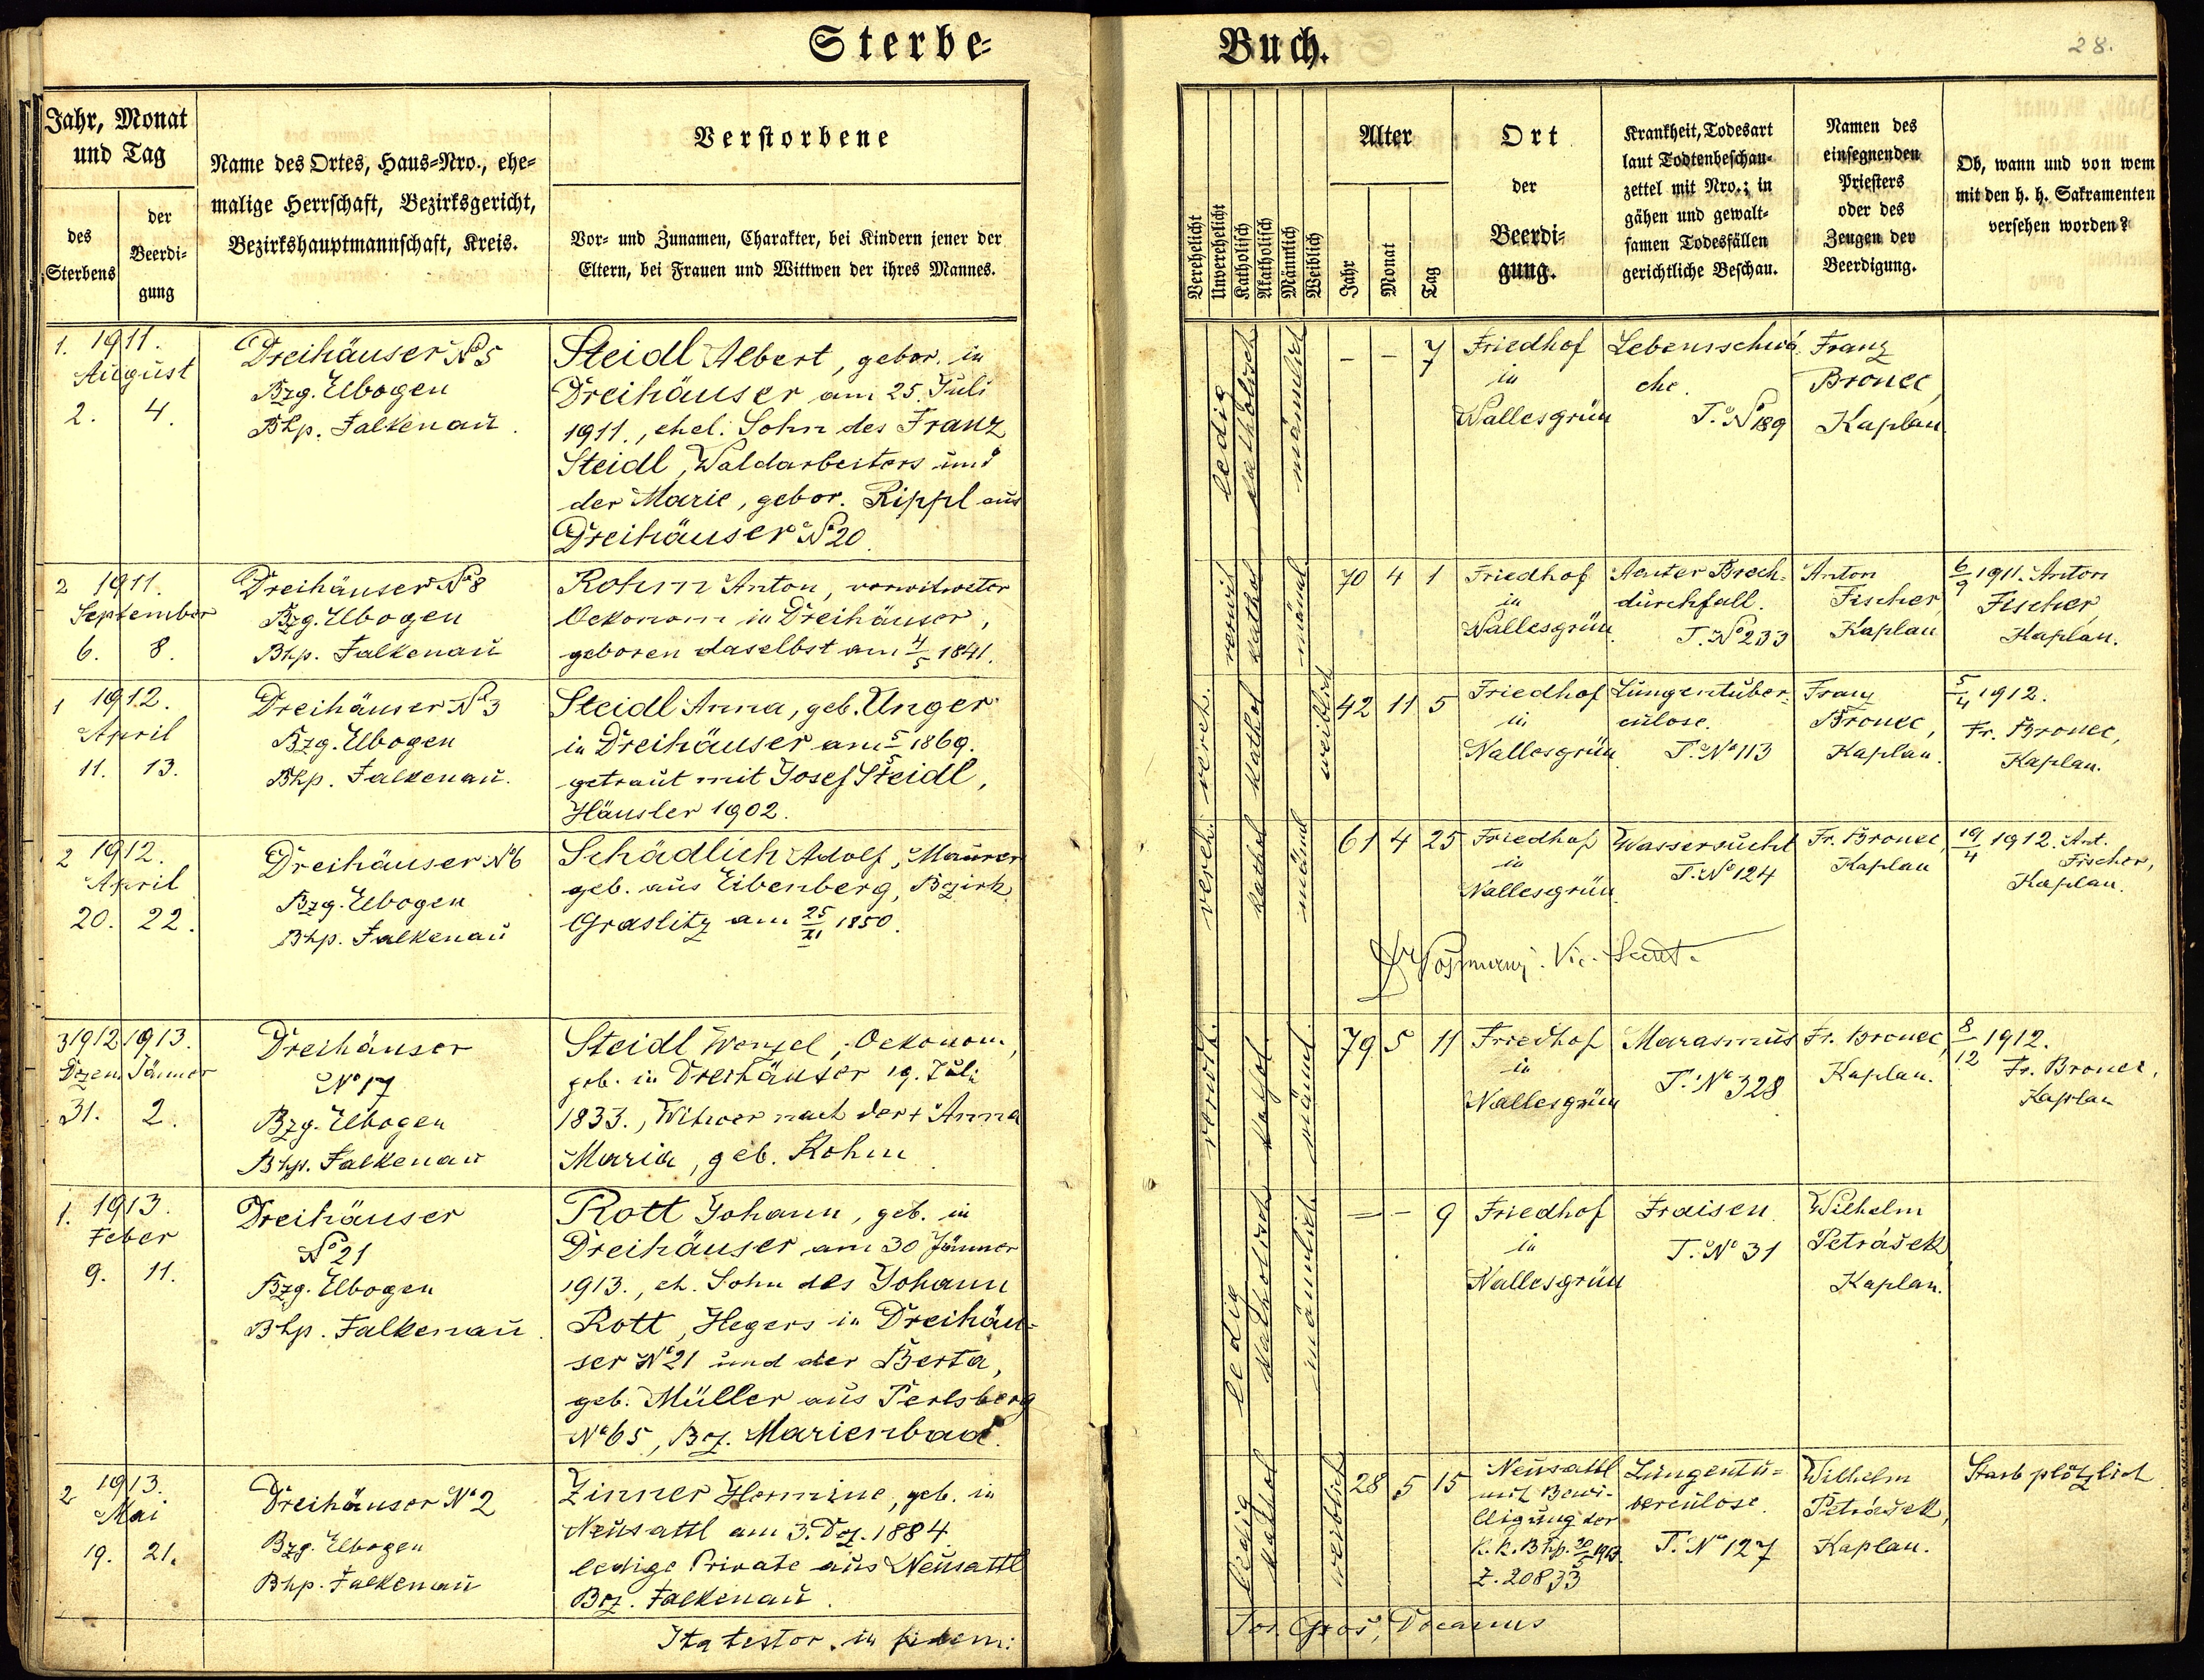 Sterbe-
Buch.
28.
Jahr, Monat
und Tag
des
Sterbens
der
Beerdi-
gung
Name des Ortes, Haus-Nro., ehe-
malige Herrschaft, Bezirksgericht,
Bezirkshauptmannschaft, Kreis.
Verstorbene
Vor- und Zunamen, Charakter, bei Kindern jener der
Eltern, bei Frauen und Wittwen der ihres Mannes.
Verehelicht
Unverehelicht
Katholisch
Akatholisch
Männlich
Weiblich
Alter
Jahr
Monat
Tag
Ort
der
Beerdi-
gung.
Krankheit, Todesart
laut Todtenbeschau-
zettel mit Nro.; in
gähen und gewalt-
samen Todesfällen
gerichtliche Beschau.
Namen des
einsegnenden
Priesters
oder des
Zeugen der
Beerdigung.
Ob, wann und von wem
mit den h. h. Sakramenten
versehen worden?
1. 1911.
August
2. 4.
Dreihäuser No 5
Bzg. Elbogen
Bhp. Falkenau.
Steidl Albert, gebor. in
Dreihäuser am 25. Juli
1911., ehel. Sohn des Franz
Steidl, Waldarbeiters und
der Marie, gebor. Rippl aus
Dreihäuser No 20.
ledig
katholisch
männlich
- - 7
Friedhof
in
Nallesgrün
Lebensschwä-
che.
T. No 189
Franz
Bronec,
Kaplan
2 1911.
September
6. 8.
Dreihäuser No 8
Bzg. Elbogen
Bhp. Falkenau
Rohm Anton, verwitweter
Oekonom in Dreihäuser,
geboren daselbst am 4/5 1841.
verwit
kathol
männl
70 4 1
Friedhof
in
Nallesgrün.
Acuter Brech-
durchfall.
T. No 233
Anton
Fischer
Kaplan
6/9 1911. Anton
Fischer,
Kaplan.
1 1912.
April
11. 13.
Dreihäuser No 3
Bzg. Elbogen
Bhp. Falkenau.
Steidl Anna, geb. Unger
in Dreihäuser am 5/5 1869.
getraut mit Josef Steidl,
Häusler 1902.
vereh.
kathol
weiblich
42 11 5
Friedhof
in
Nallesgrün
Lungentuber-
culose.
T. No 113
Franz
Bronec,
Kaplan.
5/4 1912.
Fr. Bronec,
Kaplan.
2 1912.
April
20. 22.
Dreihäuser No 6
Bzg. Elbogen
Bhp. Falkenau
Schädlich Adolf, Maurer
geb. aus Eibenberg, Bezirk
Graslitz am 25/XI 1850.
vereh.
kathol
männl
61 4 25
Friedhof
in
Nallesgrün.
Wassersucht
T. No 124
Fr. Bronec,
Kaplan
19/4 1912. Ant.
Fischer,
Kaplan.
Vic. Secret.
3 1912 1913.
Dezem. Jänner
31. 2.
Dreihäuser
No 17
Bzg. Elbogen
Bhp. Falkenau
Steidl Wenzel, Oekonom,
geb. in Dreihäuser 19. Juli
1833., Witwer nach der + Anna
Maria, geb. Rohm
verwit.
kathol.
männl.
79 5 11
Friedhof
in
Nallesgrün
Marasmus
T. No 328
Fr. Bronec,
Kaplan.
8/12 1912.
Fr. Bronec,
Kaplan
1. 1913.
Feber
9. 11.
Dreihäuser
No 21
Bzg. Elbogen
Bhp. Falkenau.
Rott Johann, geb. in
Dreihäuser am 30 Jänner
1913., eh. Sohn des Johann
Rott, Hegers in Dreihäu-
ser No 21 und der Berta,
geb. Müller aus Perlsberg
No 65, Bez. Marienbad.
ledig
katholisch
männlich
- - 9
Friedhof
in
Nallesgrün
Fraisen.
T. No 31
Wilhelm
Petrášek,
Kaplan.
2 1913.
Mai
19. 21.
Dreihäuser No 2
Bzg. Elbogen
Bhp. Falkenau
Zinner Hermine, geb. in
Neusattl am 3. Dez. 1884.
ledige Private aus Neusattl
Bez. Falkenau.
ledig
kathol
weiblich
28 5 15
Neusattl
mit Bewi-
lligung der
k. k. Bhp. 20/5 1913
Z. 20833
Lungentu-
berculose.
T. No 127
Wilhelm
Petrášek,
Kaplan.
Starb plötzlich
Ita testor in fidem:
Jos. Groš, Decanus